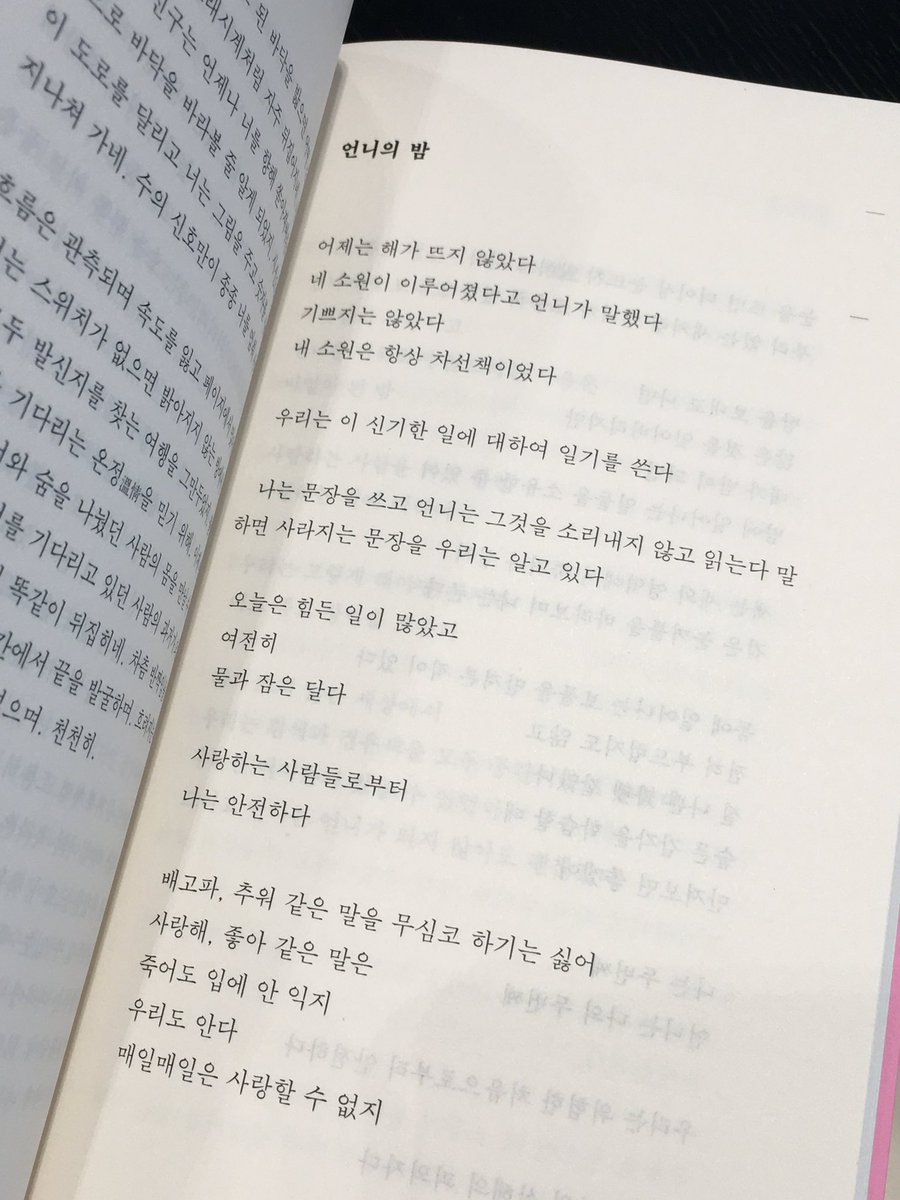 된 바닥을 밟으면
래시계처럼 자주 뒤집어지네
친구는 언제나 너를 향해
으로 바닥을 바라볼 줄 알게 되었지
이 도로를 달리고 너는 그림을 주고
지나쳐 가네. 수의 신호만이 종종 너를
흐름은 관측되며 속도를 잃고 페이지에서
는 스위치가 없으면 밝아지지 않는
두 발신지를 찾는 여행을 그만두었
기다리는 온정溫情을 믿기 위해.
와 숨을 나눴던 사람의 몸을
를 기다리고 있던 사람의
똑같이 뒤집히네. 차츰
간에서 끝을 발굴하며.
으며. 천천히.
언니의 밤
어제는 해가 뜨지 않았다
네 소원이 이루어졌다고 언니가 말했다
기쁘지는 않았다
내 소원은 항상 차선책이었다
우리는 이 신기한 일에 대하여 일기를 쓴다
나는 문장을 쓰고 언니는 그것을 소리내지 않고 읽는다 말
하면 사라지는 문장을 우리는 알고 있다
오늘은 힘든 일이 많았고
여전히
물과 잠은 달다
사랑하는 사람들로부터
나는 안전하다
배고파, 추워 같은 말을 무심코 하기는 싫어
사랑해, 좋아 같은 말은
죽어도 입에 안 익지
우리도 안다
매일매일은 사랑할 수 없지